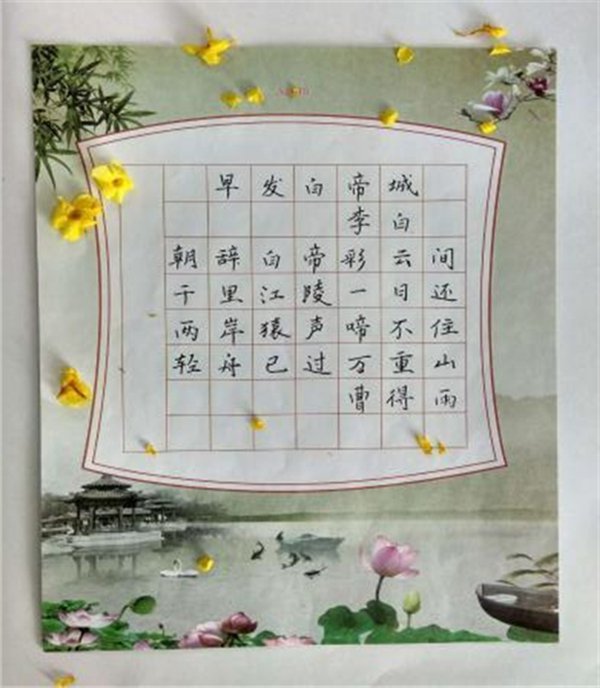 早发白帝城
李白
朝辞白帝彩云间
千里江陵一日还
两岸猿声啼不住
轻舟已过万重山
曹得雨